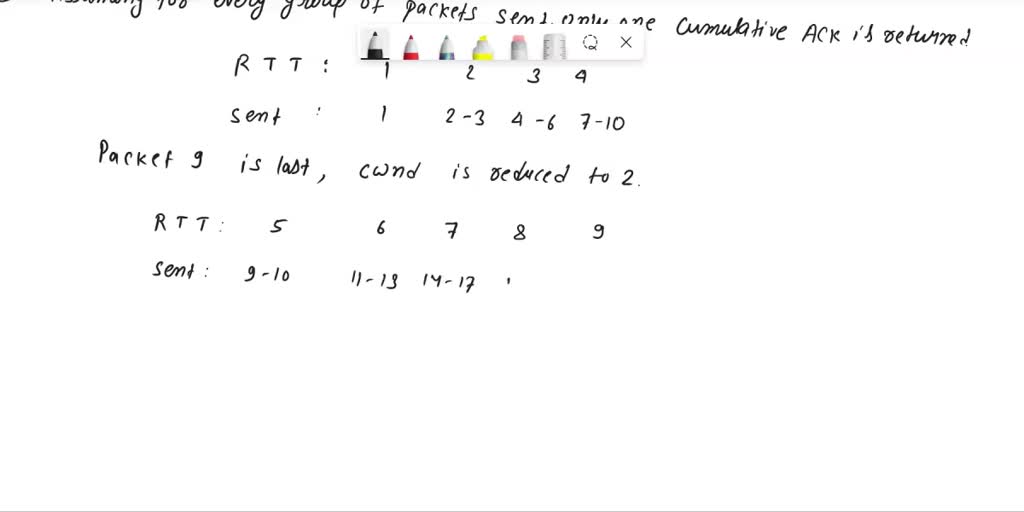 every group of packets sent only one cumulative ACK is returned
RTT : 1 2 3 4
sent : 1 2-3 4-6 7-10
Packet 9 is last, cwnd is reduced to 2.
RTT : 5 6 7 8 9
sent : 9-10 11-13 14-17